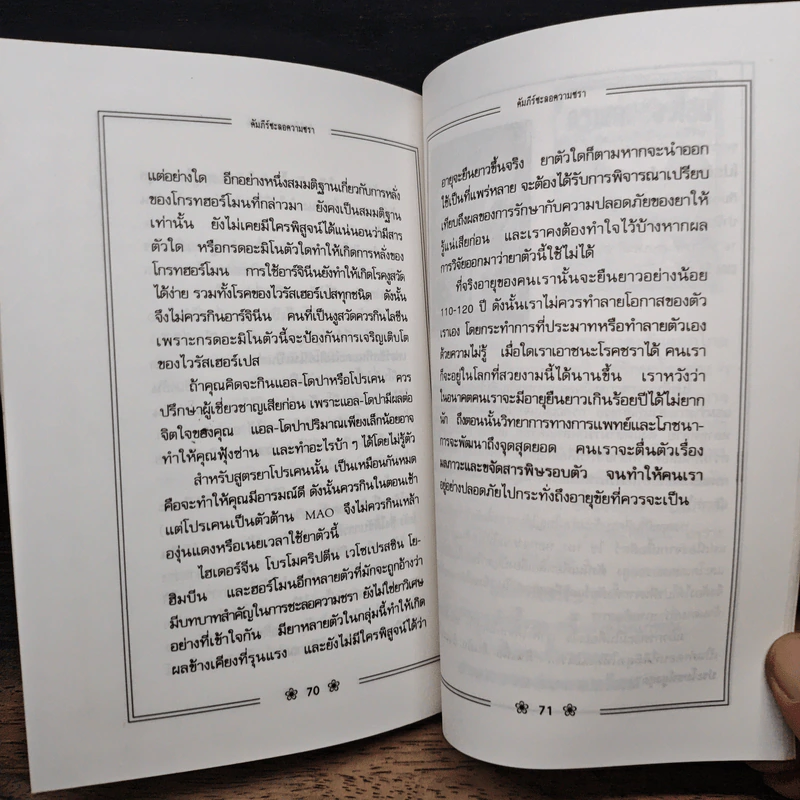 คัมภีร์ชะลอความชรา
แต่อย่างใด อีกอย่างหนึ่งสมมติฐานเกี่ยวกับการหลั่ง
ของโกรทฮอร์โมนที่กล่าวมา ยังคงเป็นสมมติฐาน
เท่านั้น ยังไม่เคยมีใครพิสูจน์ได้แน่นอนว่ามีสาร
ตัวใด หรือกรดอะมิโนตัวใดทำให้เกิดการหลั่งของ
โกรทฮอร์โมน การใช้อาร์จินีนยังทำให้เกิดโรคงูสวัด
ได้ง่าย รวมทั้งโรคของไวรัสเฮอร์เปสทุกชนิด ดังนั้น
จึงไม่ควรกินอาร์จินีน คนที่เป็นงูสวัดควรกินไลซีน
เพราะกรดอะมิโนตัวนี้จะป้องกันการเจริญเติบโต
ของไวรัสเฮอร์เปส
ถ้าคุณคิดจะกินแอล-โดปาหรือโปรเคน ควร
ปรึกษาผู้เชี่ยวชาญเสียก่อน เพราะแอล-โดปามีผลต่อ
จิตใจของคุณ แอล-โดปาปริมาณเพียงเล็กน้อยอาจ
ทำให้คุณฟุ้งซ่าน และทำอะไรบ้า ๆ ได้โดยไม่รู้ตัว
สำหรับสูตรยาโปรเคนนั้น เป็นเหมือนกันหมด
คือจะทำให้คุณมีอารมณ์ดี ดังนั้นควรกินในตอนเช้า
แต่โปรเคนเป็นตัวต้าน MAO จึงไม่ควรกินเหล้า
องุ่นแดงหรือเนยเวลาใช้ยาตัวนี้
ไฮเดอร์จีน โบรโมคริปตีน เวโซเปรสซิน โย-
ฮิมบีน และฮอร์โมนอีกหลายตัวที่มักจะถูกอ้างว่า
มีบทบาทสำคัญในการชะลอความชรา ยังไม่ใช่ยาวิเศษ
อย่างที่เข้าใจกัน มียาหลายตัวในกลุ่มนี้ทำให้เกิด
ผลข้างเคียงที่รุนแรง และยังไม่มีใครพิสูจน์ได้ว่า
70
คัมภีร์ชะลอความชรา
อายุจะยืนยาวขึ้นจริง ยาตัวใดก็ตามหากจะนำออก
ใช้เป็นที่แพร่หลาย จะต้องได้รับการพิจารณาเปรียบ
เทียบถึงผลของการรักษากับความปลอดภัยของยาให้
รู้แน่เสียก่อน และเราคงต้องทำใจไว้บ้างหากผล
การวิจัยออกมาว่ายาตัวนี้ใช้ไม่ได้
ที่จริงอายุของคนเรานั้นจะยืนยาวอย่างน้อย
110-120 ปี ดังนั้นเราไม่ควรทำลายโอกาสของตัว
เราเอง โดยกระทำการที่ประมาทหรือทำลายตัวเอง
ด้วยความไม่รู้ เมื่อใดเราเอาชนะโรคชราได้ คนเรา
ก็จะอยู่ในโลกที่สวยงามนี้ได้นานขึ้น เราหวังว่า
ในอนาคตคนเราจะมีอายุยืนยาวเกินร้อยปีได้ไม่ยาก
นัก ถึงตอนนั้นวิทยาการทางการแพทย์และโภชนา-
การจะพัฒนาถึงจุดสุดยอด คนเราจะตื่นตัวเรื่อง
มลภาวะและขจัดสารพิษรอบตัว จนทำให้คนเรา
อยู่อย่างปลอดภัยไปกระทั่งถึงอายุขัยที่ควรจะเป็น
71